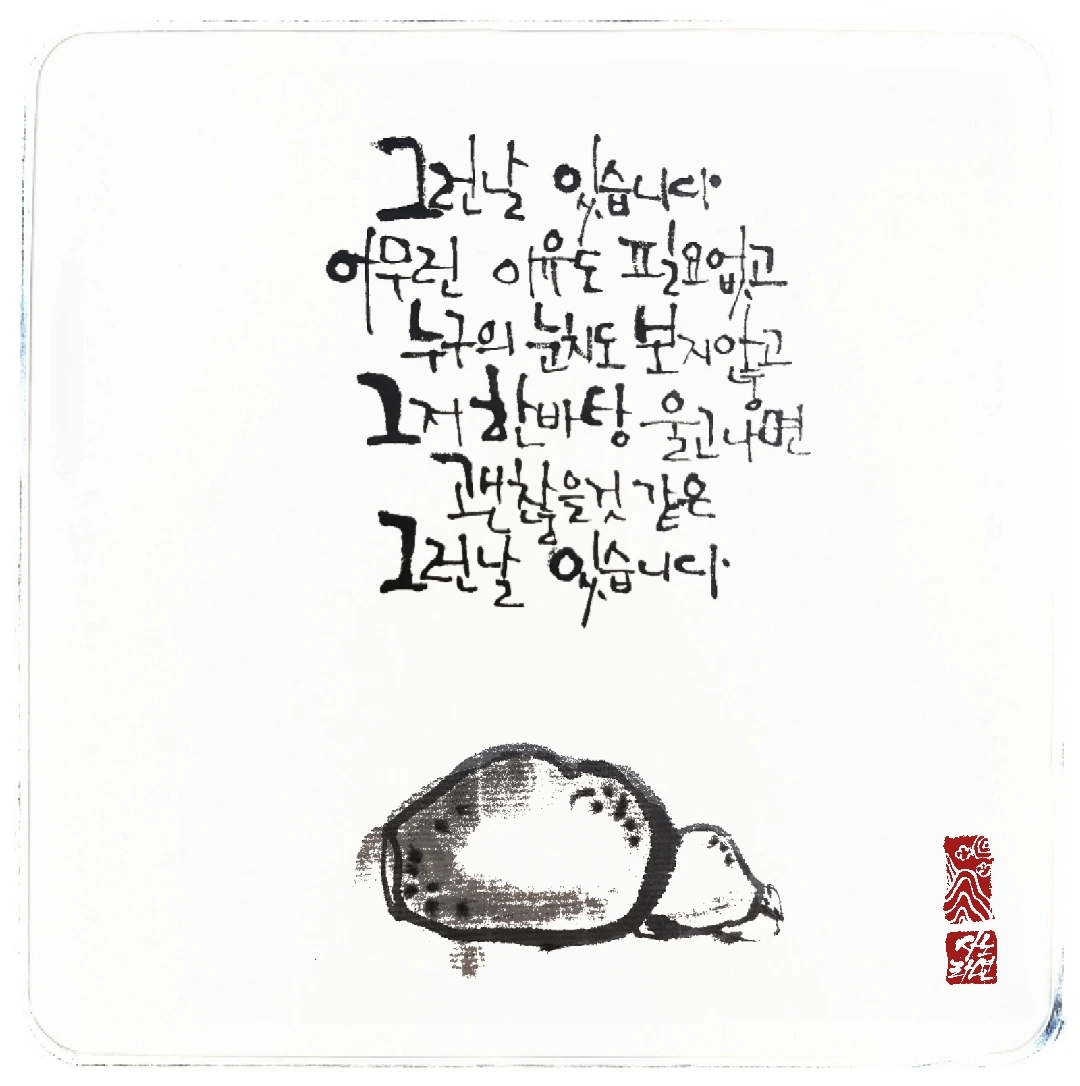 그런날 있습니다
아무런 이유도 필요없고
누구의 눈치도 보지않고
그저 한바탕 울고나면
괜찮을것 같은
그런날 있습니다.